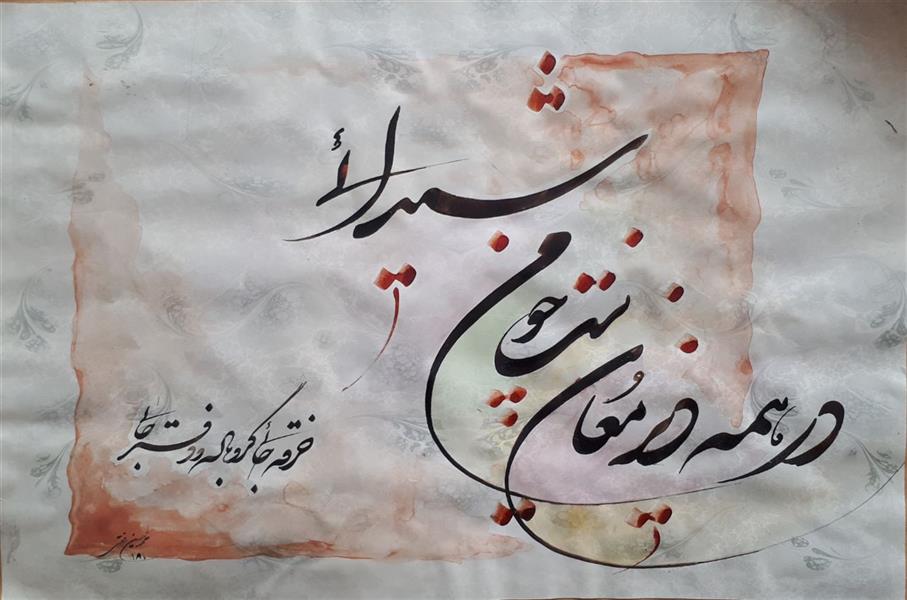 در همه دیر مغان نیست چو من شیدائی
خرقه جائی گرو باده و دفتر جائی